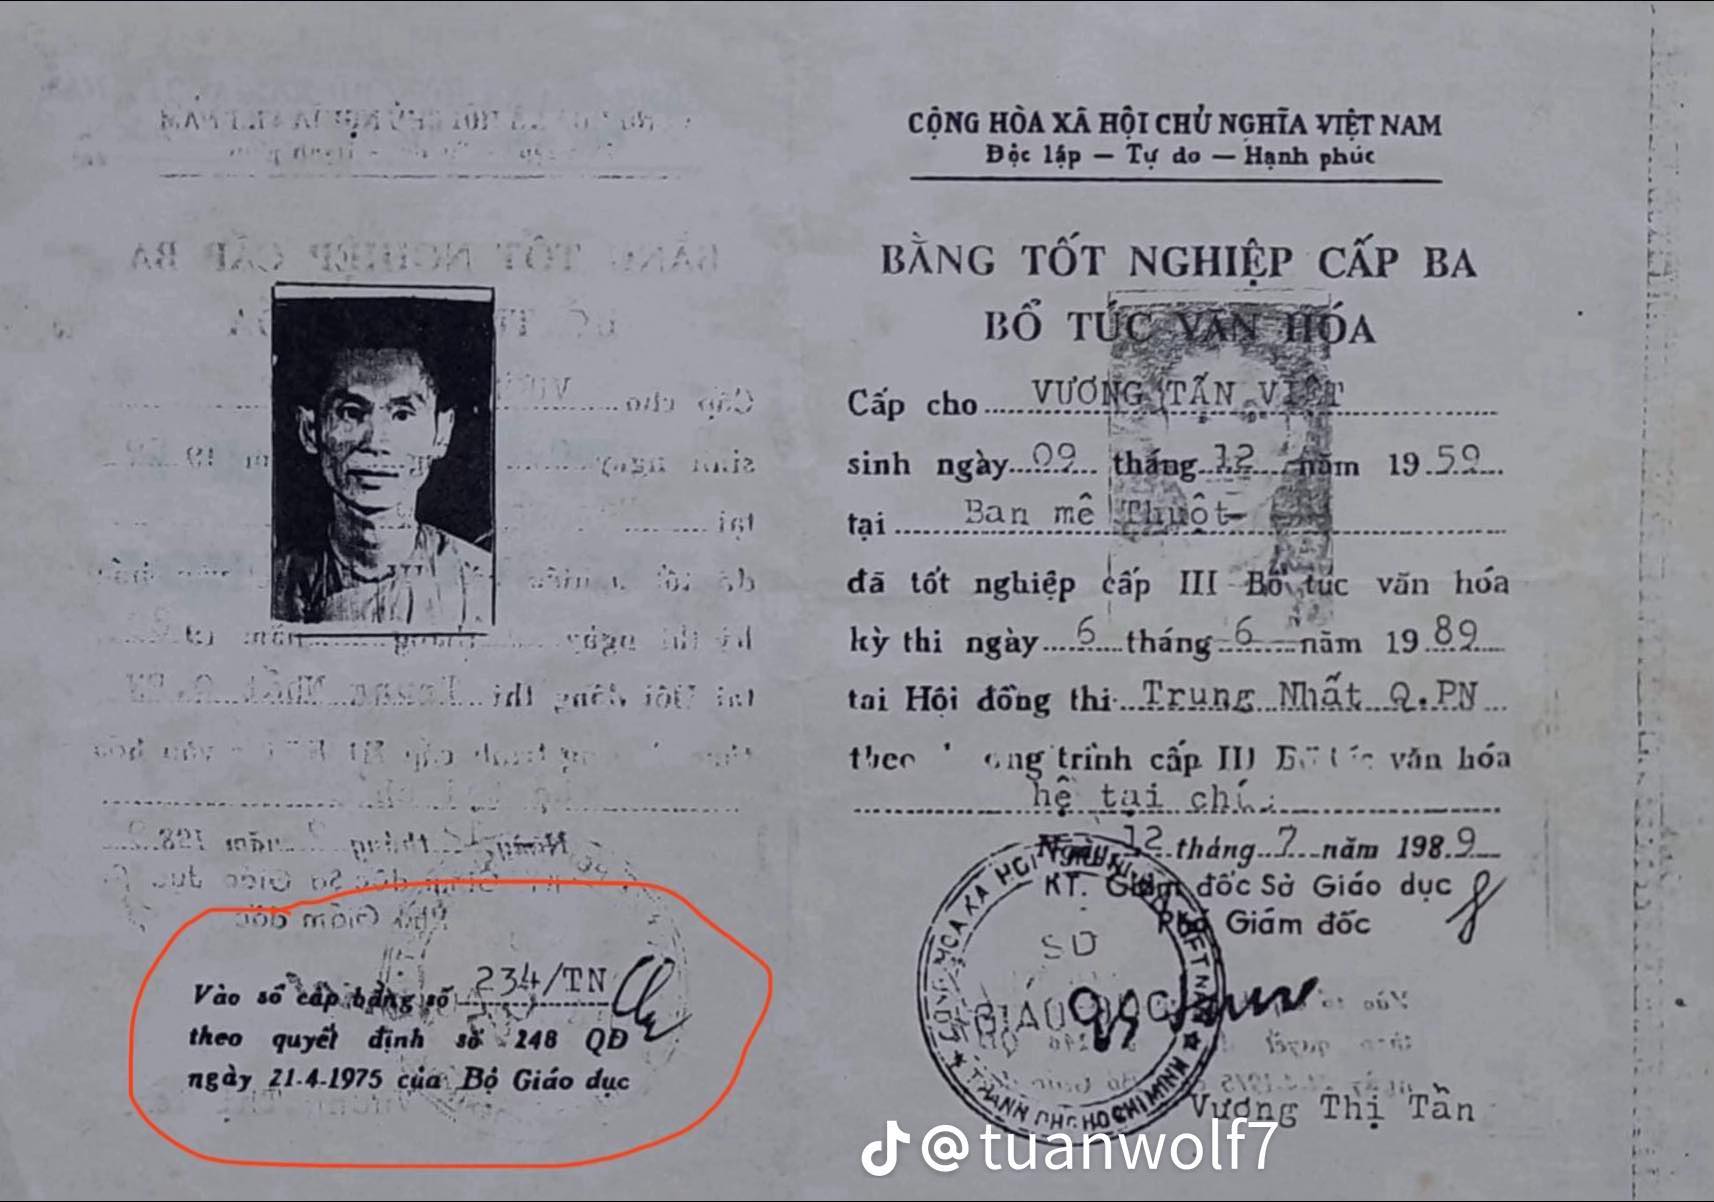 CỘNG HÒA XÃ HỘI CHỦ NGHĨA VIỆT NAM
Độc lập — Tự do — Hạnh phúc
BẰNG TỐT NGHIỆP CẤP BA
BỔ TÚC VĂN HÓA
Cấp cho VƯƠNG TẤN VIỆT
sinh ngày 09 tháng 12 năm 1959
tại Ban mê Thuột
đã tốt nghiệp cấp III Bổ túc văn hóa
kỳ thi ngày 6 tháng 6 năm 1989
tại Hội đồng thi Trung Nhất Q.PN
trình cấp III văn hóa
hệ tại
Ngày 12 tháng 7 năm 1989
KT. Giám đốc Sở Giáo dục
Phó Giám đốc
SỞ
GIÁO DỤC
THÀNH PHỐ HỒ CHÍ MINH
Vương Thị Tân
Vào sổ cấp bằng số 234/TN
theo quyết định số 248 QĐ
ngày 21-4-1975 của Bộ Giáo dục
@tuanwolf7